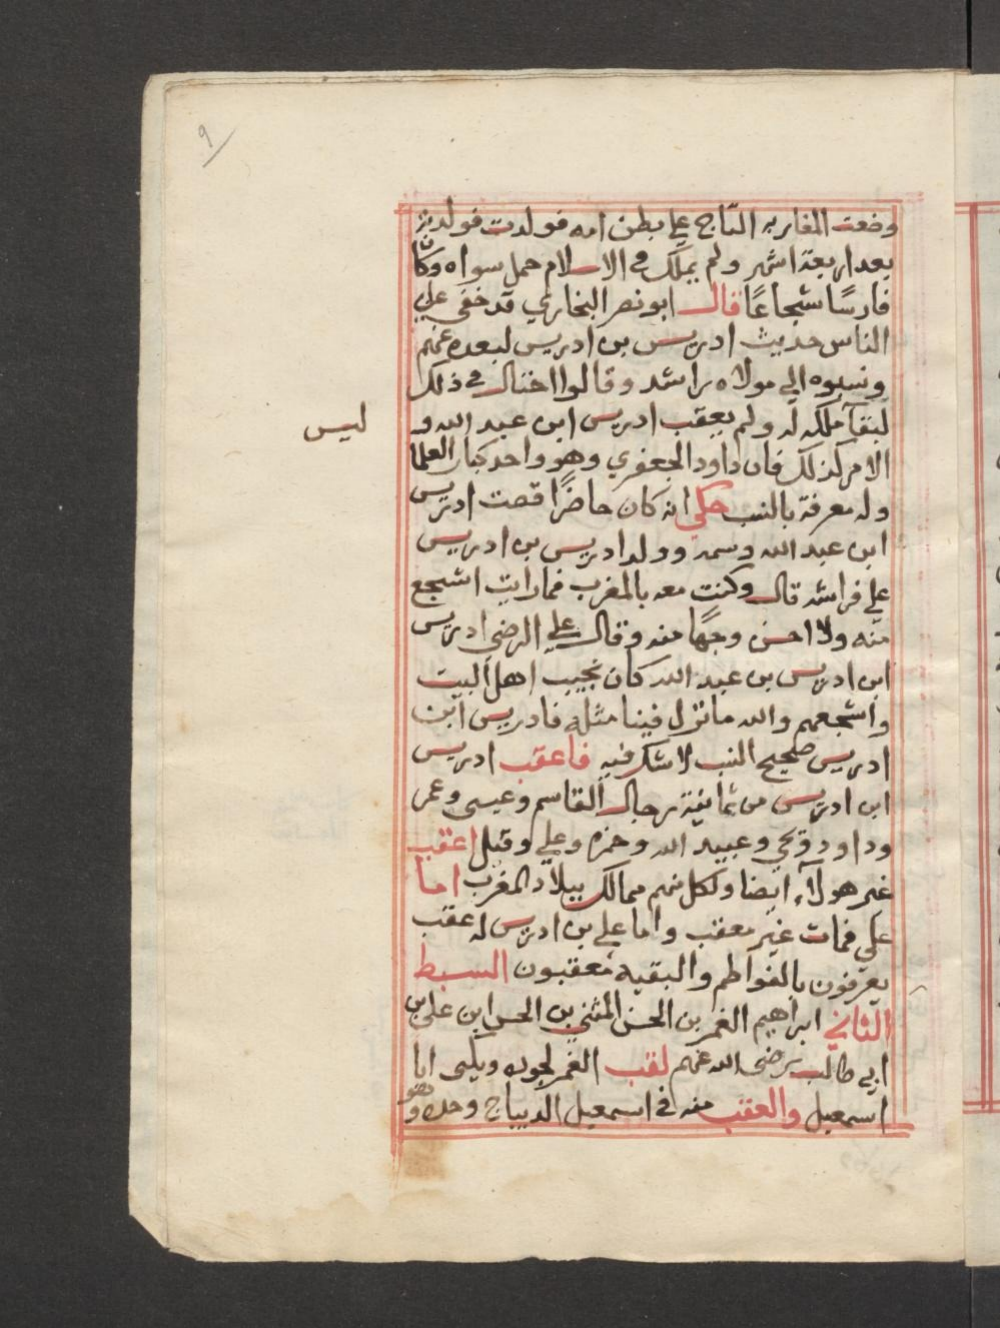 ٩
وضعت المغاربه التاج علي بطن امه فولدت فولدته
بعد اربعة اشهر ولم يملك في الاسلام حمل سواه وكان
فارسًا شجاعًا قال ابو نصر البخاري قد خفي علي
الناس حديث ادريس بن ادريس لبعده عنهم
ونسبوه الي مولاه راشد وقالوا احتال في ذلك
لبقآء ملكه له ولم يعقب ادريس ابن عبد الله و
ليس
الامر كذلك فان داود الجعفري وهو واحد كبار العلما
وله معرفة بالنسب حكي انه كان حاضرًا قصت ادريس
ابن عبد الله وسمه وولد ادريس بن ادريس
علي فراشه قال وكنت معه بالمغرب فما رايت اشجع
منه ولا احسن وجهًا منه وقال علي الرضي ادريس
ابن ادريس بن عبد الله كان نجيب اهل البيت
واشجعهم والله ما نزل فينا مثله فادريس ابن
ادريس صحيح النسب لا شك فيه فاعقب ادريس
ابن ادريس من ثمانية رجال القاسم وعيسى وعمر
وداود ويحي وعبيد الله وحمزه وعلي وقيل اعقب
غير هولآء ايضا ولكل منهم ممالك ببلاد المغرب اما
علي فمات غير معقب واما علي بن ادريس له عقب
يعرفون بالفواطم والبقيه معقبون السبط
الثاني ابراهيم الغمر بن الحسن المثني بن الحسن ابن علي بن
ابي طالب رضي الله عنهم لقب الغمر لجوده ويكنى ابا
اسمعيل والعقب منه في اسمعيل الديباج وحده وهو